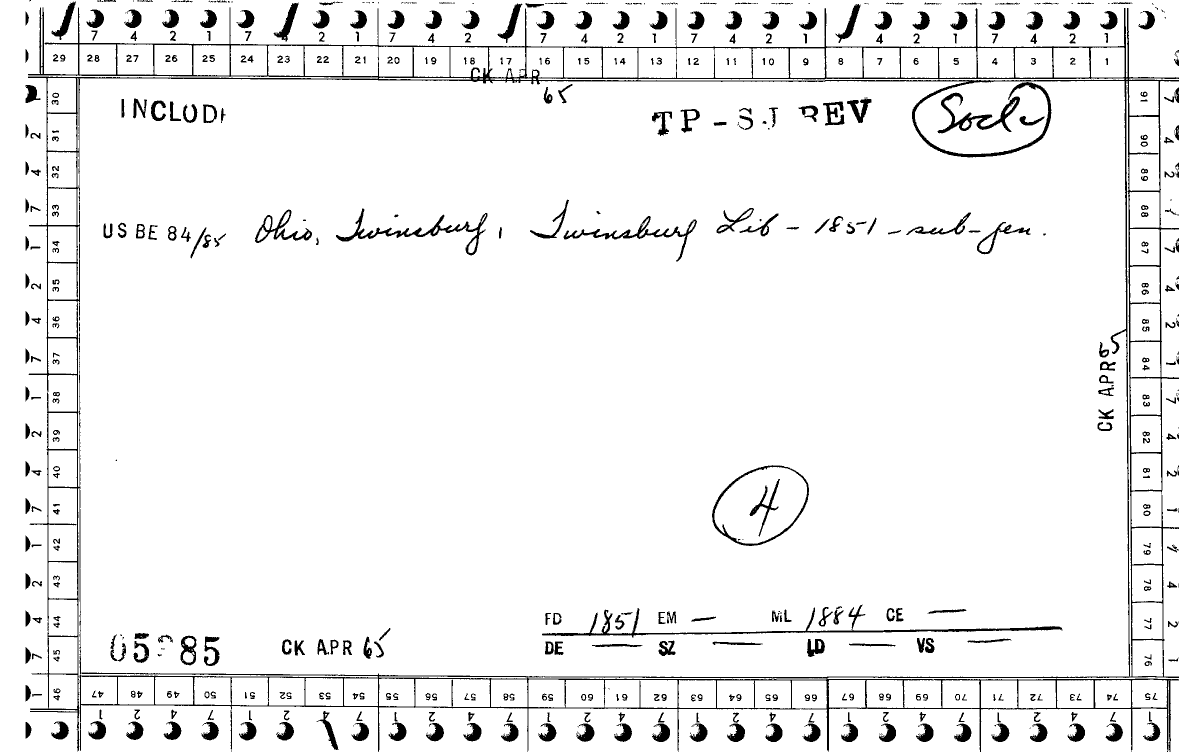 7 4 2 1 7 4 2 1 7 4 2 1 7 4 2 1 7 4 2 1 7 4 2 1 7 4 2 1
29 28 27 26 25 24 23 22 21 20 19 18 17 16 15 14 13 12 11 10 9 8 7 6 5 4 3 2 1
CK APR 65
TP - SJ REV
US BE 84/85 Ohio, Twinsburg, Twinsburg Lib - 1851 - sub-gen.
CK APR 65
4
FD 1851 EM — ML 1884 CE —
DE — SZ — LD — VS —
CK APR 65
30 31 32 33 34 35 36 37 38 39 40 41 42 43 44 45 46
91 90 89 88 87 86 85 84 83 82 81 80 79 78 77 76
47 48 49 50 51 52 53 54 55 56 57 58 59 60 61 62 63 64 65 66 67 68 69 70 71 72 73 74 75